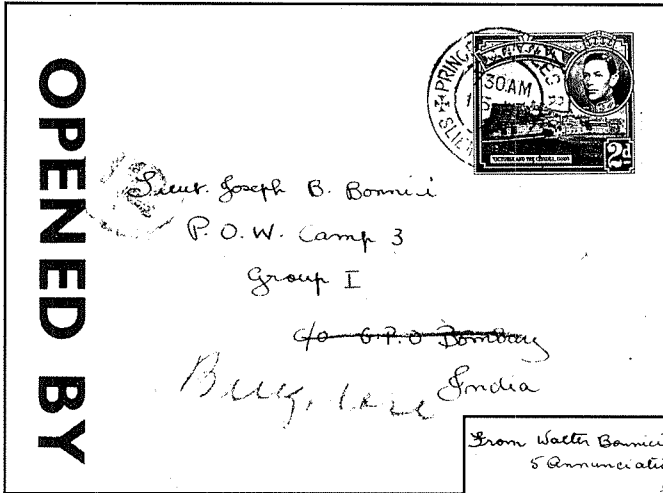 OPENED BY
PRINC
30AM
VICTORIA AND THE CITADEL, GOZO
2d
Lieut. Joseph B. Bonnici
P.O.W. Camp 3
Group I
c/o G.P.O Bombay
India
From Walter Bonnici
5 Annunciati